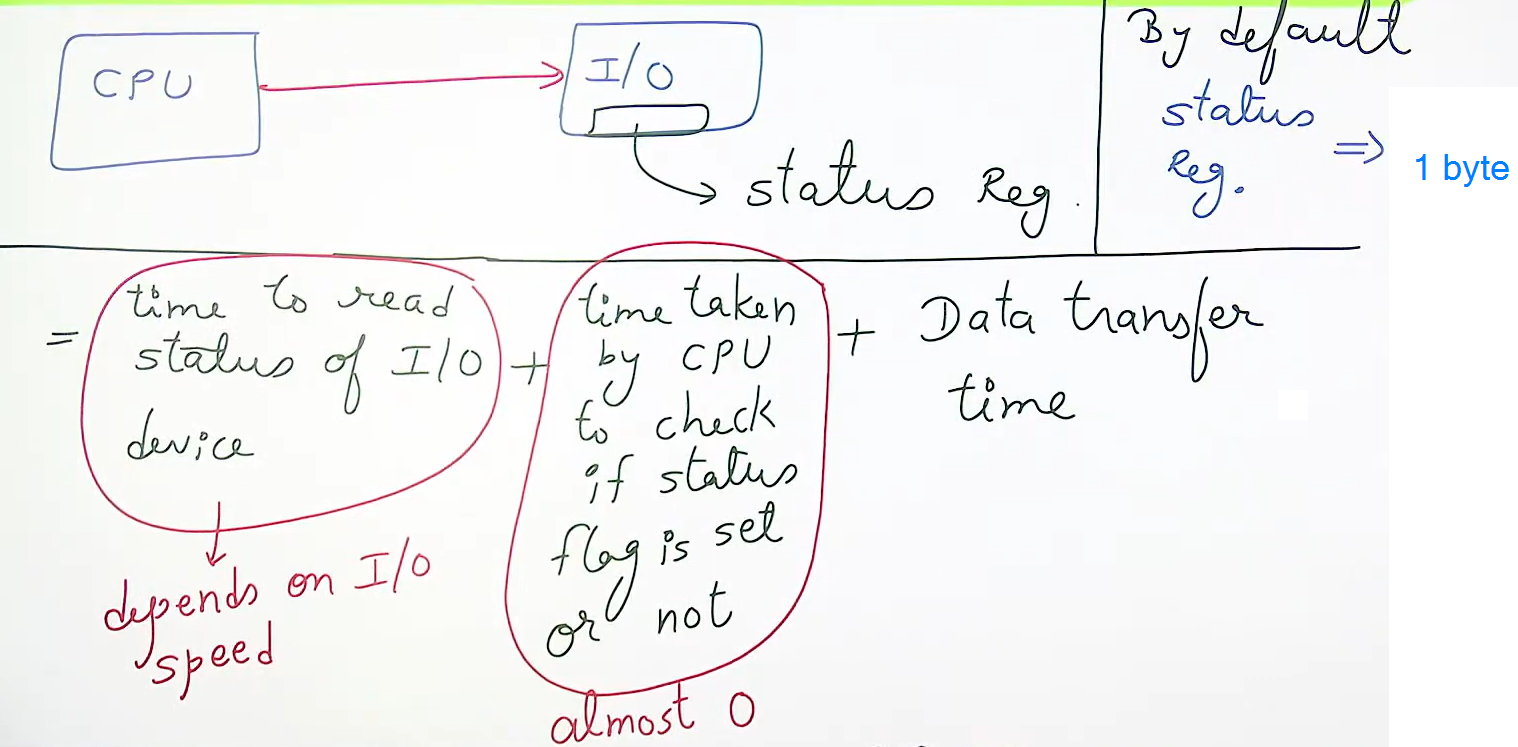 CPU
I/O
status Reg.
By default
status
Reg.
⇒
1 byte
=
time to read
status of I/O
device
+
time taken
by CPU
to check
if status
flag is set
or not
+
Data transfer
time
depends on I/O
speed
almost 0